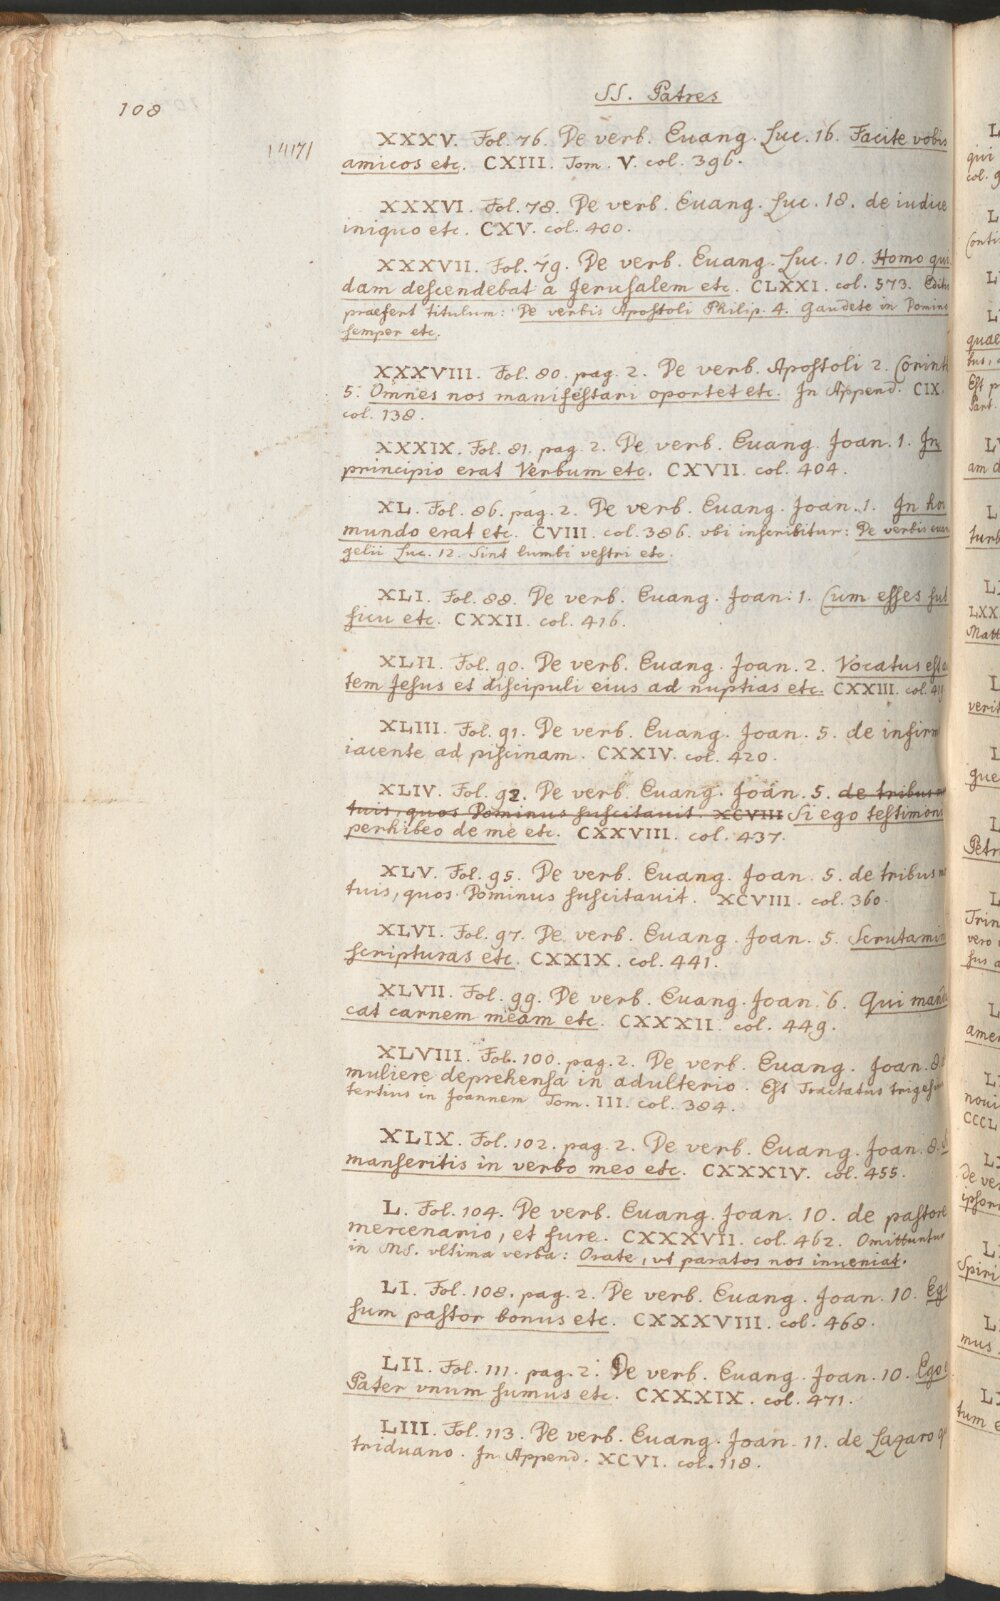 108
SS. Patres
14171
XXXV. Fol. 76. De verb. Euang. Luc. 16. Facite vobis
amicos etc. CXIII. Tom. V. col. 396.
XXXVI. Fol. 78. De verb. Euang. Luc. 18. de iudice
iniquo etc. CXV. col. 400.
XXXVII. Fol. 79. De verb. Euang. Luc. 10. Homo qui
dam descendebat a Jerusalem etc. CLXXI. col. 573. Editus
praefert titulum: De verbis Apostoli Philip. 4. Gaudete in Domino
semper etc.
XXXVIII. Fol. 80. pag. 2. De verb. Apostoli 2. Corinth
5. Omnes nos manifestari oportet etc. In Append. CIX.
col. 138.
XXXIX. Fol. 81. pag. 2. De verb. Euang. Joan. 1. In
principio erat Verbum etc. CXVII. col. 404.
XL. Fol. 86. pag. 2. De verb. Euang. Joan. 1. In hoc
mundo erat etc. CVIII. col. 386. vbi inscribitur: De verbis euan
gelii Luc. 12. Sint lumbi vestri etc.
XLI. Fol. 88. De verb. Euang. Joan. 1. Cum esses sub
ficu etc. CXXII. col. 416.
XLII. Fol. 90. De verb. Euang. Joan. 2. Vocatus est a
tem Jesus et discipuli eius ad nuptias etc. CXXIII. col. 41
XLIII. Fol. 91. De verb. Euang. Joan. 5. de infirm
iacente ad piscinam. CXXIV. col. 420.
XLIV. Fol. 92. De verb. Euang. Joan. 5. de tribus m
tuis, quos Dominus suscitauit. XCVIII Si ego testimoni
perhibeo de me etc. CXXVIII. col. 437.
XLV. Fol. 95. De verb. Euang. Joan. 5. de tribus m
tuis, quos Dominus suscitauit. XCVIII. col. 360.
XLVI. Fol. 97. De verb. Euang. Joan. 5. Scrutamin
scripturas etc. CXXIX. col. 441.
XLVII. Fol. 99. De verb. Euang. Joan. 6. Qui mandu
cat carnem meam etc. CXXXII. col. 449.
XLVIII. Fol. 100. pag. 2. De verb. Euang. Joan. 8.
muliere deprehensa in adulterio. Est Tractatus trigesim
tertius in Joannem Tom. III. col. 384.
XLIX. Fol. 102. pag. 2. De verb. Euang. Joan. 8. S
manseritis in verbo meo etc. CXXXIV. col. 455.
L. Fol. 104. De verb. Euang. Joan. 10. de pastore
mercenario, et fure. CXXXVII. col. 462. Omittuntur
in MS. vltima verba: Orate, vt paratos nos inueniat.
LI. Fol. 108. pag. 2. De verb. Euang. Joan. 10. Ego
sum pastor bonus etc. CXXXVIII. col. 468.
LII. Fol. 111. pag. 2. De verb. Euang. Joan. 10. Ego
Pater vnum sumus etc. CXXXIX. col. 471.
LIII. Fol. 113. De verb. Euang. Joan. 11. de Lazaro q
triduano. In Append. XCVI. col. 118.